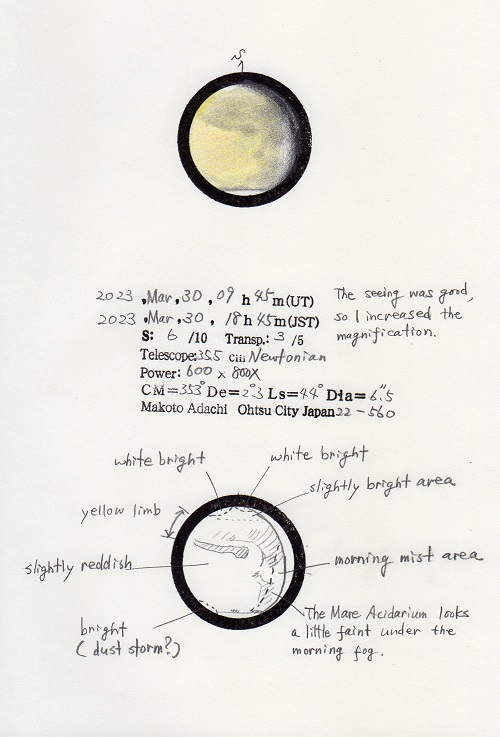 S
2023 , Mar, 30 , 09 h 45 m (UT)
2023 , Mar, 30 , 18 h 45 m (JST)
S: 6 /10 Transp.: 3 /5
Telescope: 355 cm Newtonian
Power: 600 x 800X
CM=353° De=2°3 Ls=44° Dia=6."5
Makoto Adachi Ohtsu City Japan 22-560
The seeing was good,
so I increased the
magnification.
white bright
white bright
slightly bright area
yellow limb
slightly reddish
morning mist area
bright
(dust storm?)
The Mare Acidarium looks
a little faint under the
morning fog.